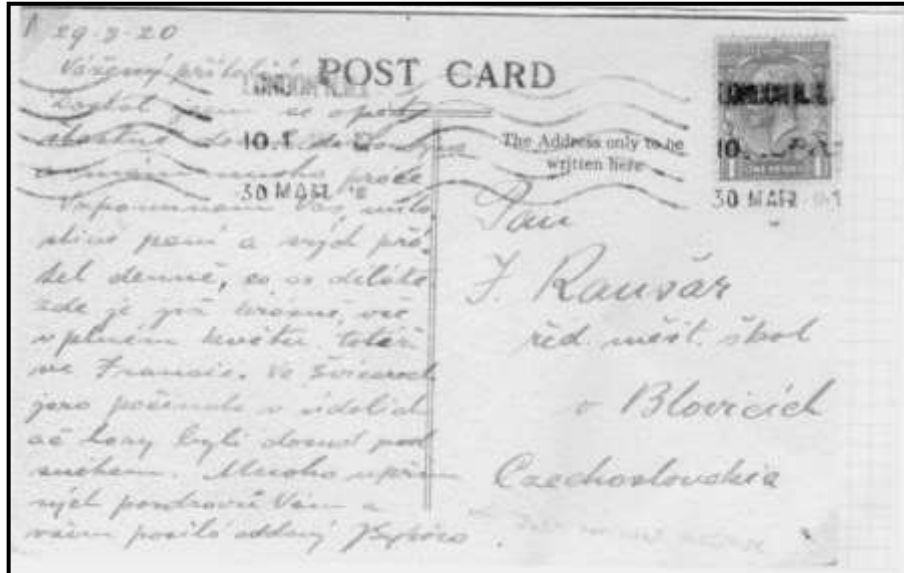 29-3-20
Vážený příteli
POST CARD
LONDON N.W.1
Dostal jsem se opět
šťastně domů
a mám mnoho práce
Vzpomínám Vás, milo
stivé paní a svých přá
tel denně, co as děláte
zde je již krásně, vše
v plném květu totéž
ve Francii. Ve Švicarech
jaro počínalo v údolích
ač hory byli dosud pod
sněhem. Mnoho upřím
ných pozdravů Vám a
všem posílá oddaný
10.
30 MAR
The Address only to be
written here
LONDON N.
10.
ONE PENNY
30 MAR
Pan
J. Rausár
řed. měst. škol
v Blovicích
Czechoslovakia